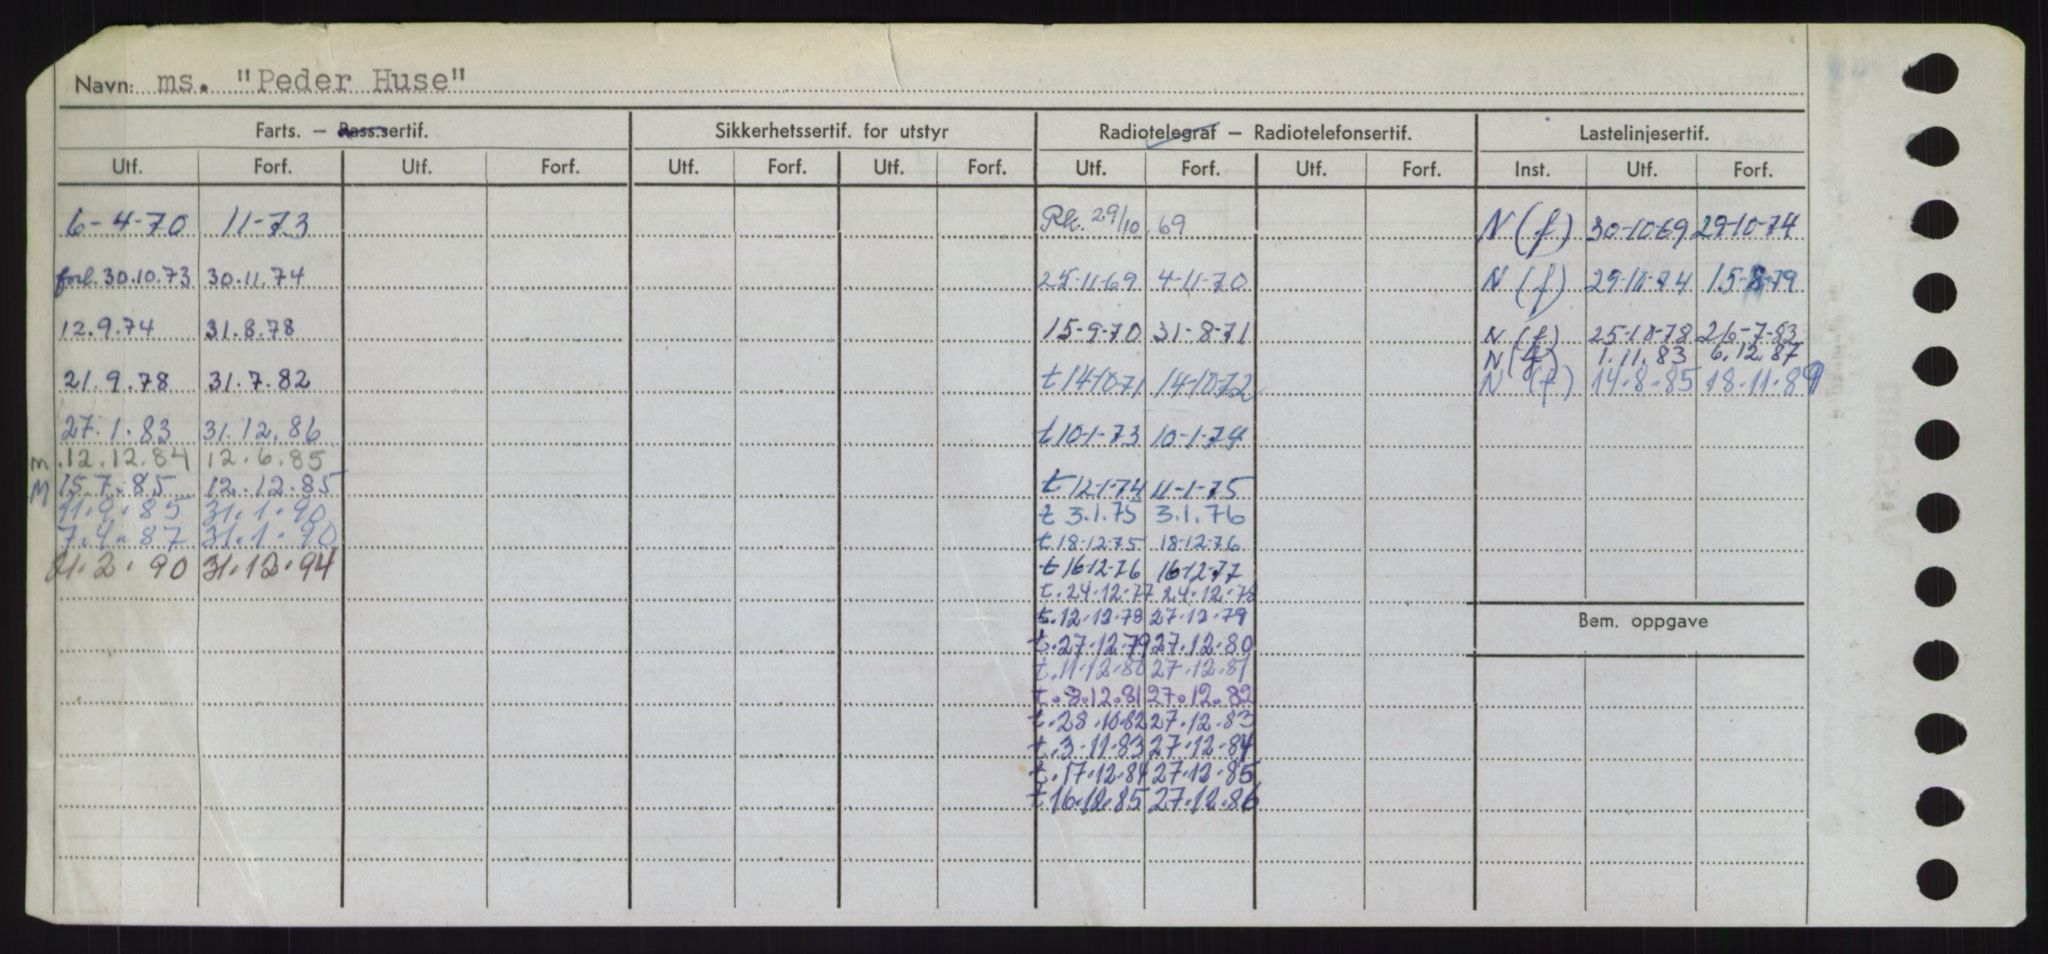 Navn: ms. "Peder Huse"
Farts. – Pass.sertif. Sikkerhetssertif. for utstyr Radiotelegraf – Radiotelefonsertif. Lastelinjesertif.
Utf. Forf. Utf. Forf. Utf. Forf. Utf. Forf. Utf. Forf. Utf. Forf. Inst. Utf. Forf.
6-4-70 11-73 Rk. 29/10 69 N (f) 30-10-69 29-10-74
forl. 30.10.73 30.11.74 25-11-69 4-11-70 N (f) 29-10-74 15-8-79
12.9.74 31.8.78 15-9-70 31-8-71 N (f) 25-10-78 26-7-83
N (f) 1.11.83 6.12.87
21.9.78 31.7.82 t 14-10-71 14-10-72 N (f) 14-8-85 18.11.89
27.1.83 31.12.86 t 10-1-73 10-1-74
m .12.12.84 12.6.85
M 15.7.85 12.12.85 t 12-1-74 11-1-75
11.9.85 31.1.90 t 3.1.75 3.1.76
7.4.87 31.1.90 t 18-12-75 18-12-76
21.2.90 31.12.94 t 16-12-76 16-12-77
t. 24.12.77 24.12.78
t. 12.12.78 27.12.79 Bem. oppgave
t. 27.12.79 27.12.80
t. 11.12.80 27.12.81
t. 8.12.81 27.12.82
t. 28.10.82 27.12.83
t. 3.11.83 27.12.84
t. 17.12.84 27.12.85
t 16.12.85 27.12.86